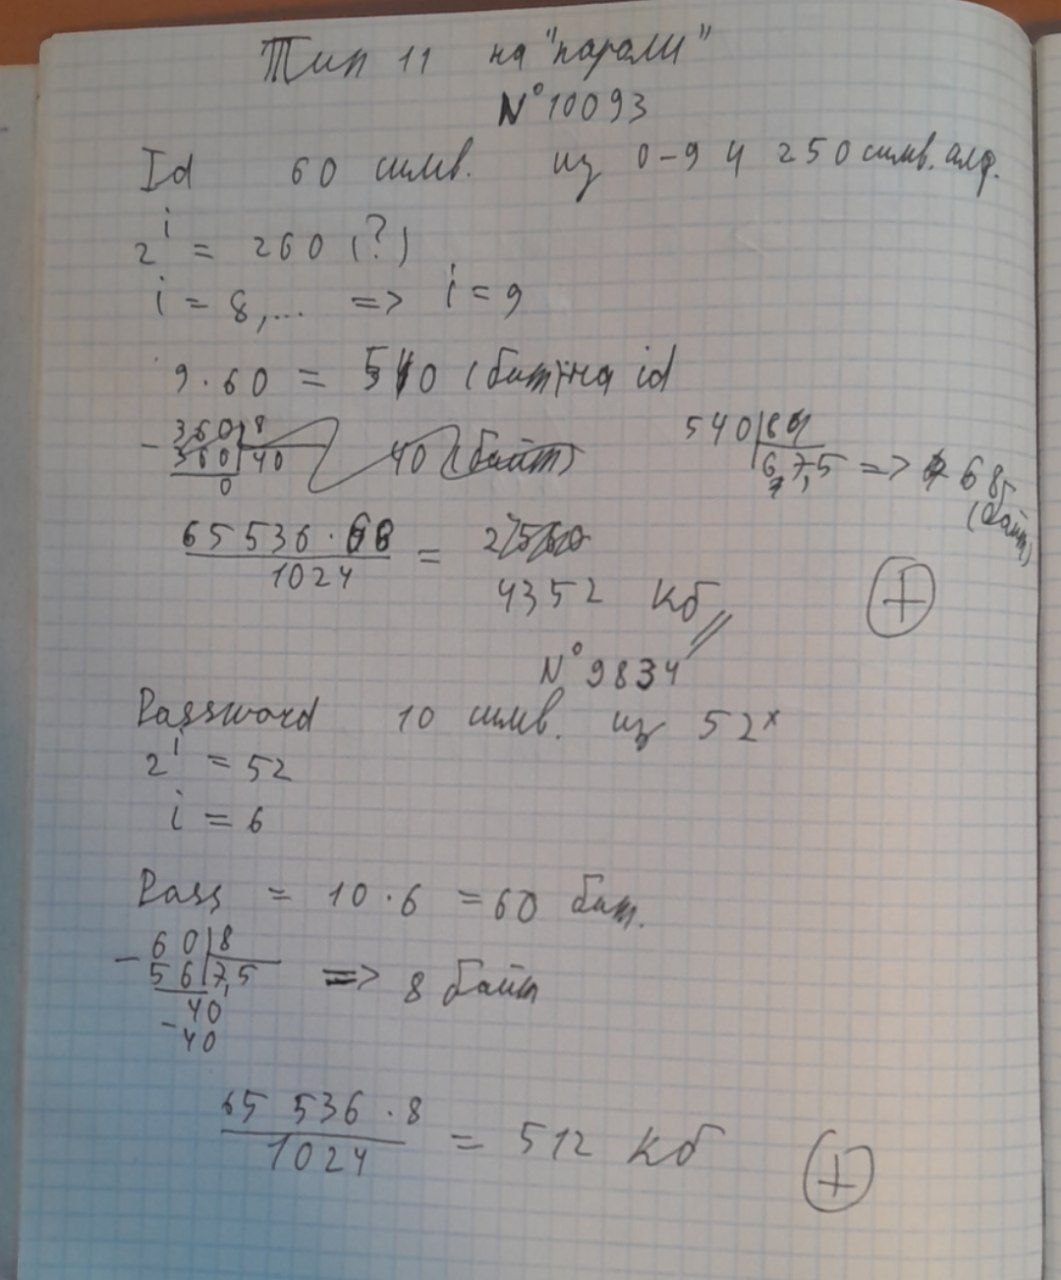 Тип 11 на "пароли"
N°10093
Id 60 симв. из 0-9 и 250 симв. алф.
2^i = 260 (?)
i = 8,... => i = 9
9·60 = 540 (бит) на id
- 360 | 8
360 | 40 40 (байт)
0
540 | 8
67,5 => 68 (байт)
65 536 · 68 / 1024 =
4352 Кб
N°9834
Password 10 симв. из 52^x
2^i = 52
i = 6
Pass = 10 · 6 = 60 бит.
- 60 | 8
56 | 7,5 => 8 байт
40
- 40
65 536 · 8 / 1024 = 512 Кб